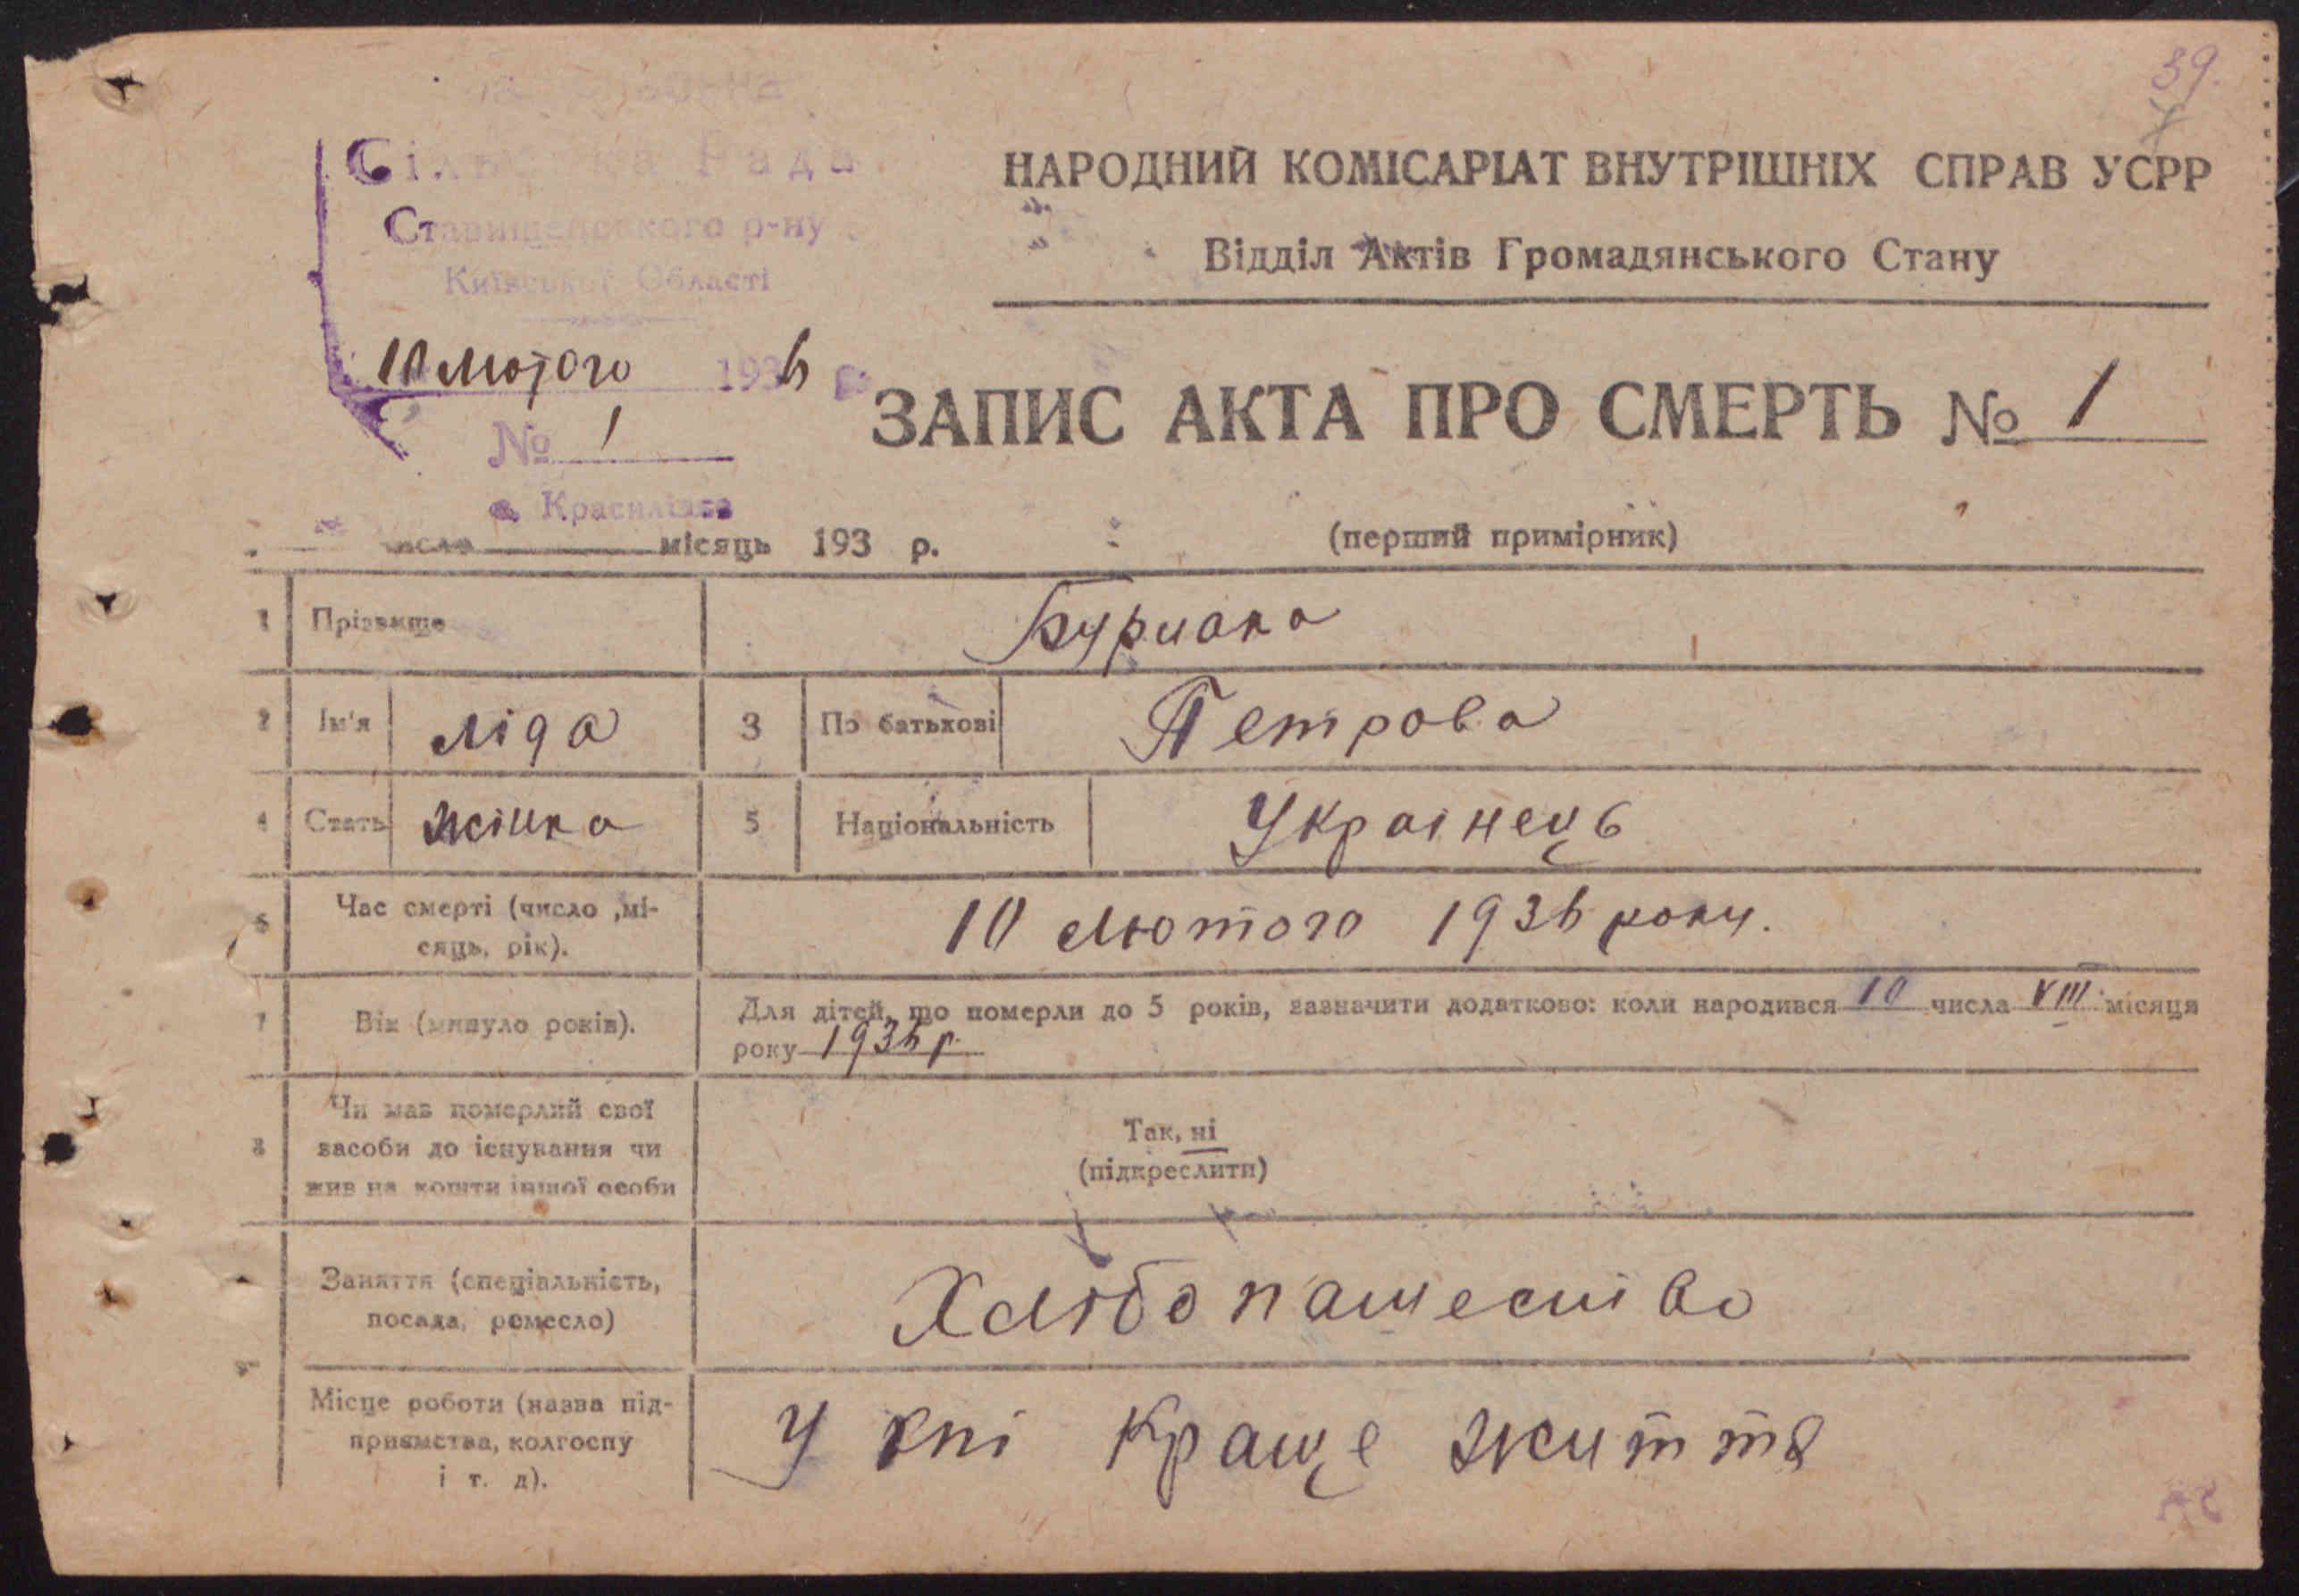 39.
Сільська Рада
Ставищенського р-ну
Київської Області
10 Лютого 1936 р.
№ 1
с. Красилівка
НАРОДНИЙ КОМІСАРІАТ ВНУТРІШНІХ СПРАВ УСРР
Відділ Актів Громадянського Стану
ЗАПИС АКТА ПРО СМЕРТЬ № 1
число місяць 193 р.
(перший примірник)
1 Прізвище Бурлака
2 Ім'я Ліда 3 По батькові Петрова
4 Стать жінка 5 Національність Украінець
6 Час смерті (число ,мі-
сяць, рік).
10 Лютого 1936 року.
7 Вік (минуло років).
Для дітей, що померли до 5 років, зазначити додатково: коли народився 10 числа VIII місяця
року 1936 р.
8 Чи мав померлий свої
засоби до існування чи
жив на кошти іншої особи
Так, ні
(підкреслити)
Заняття (спеціальність,
посада, ремесло)
Хлібопашество
9
Місце роботи (назва під-
приємства, колгоспу
і т. д).
У кпі Краще життя